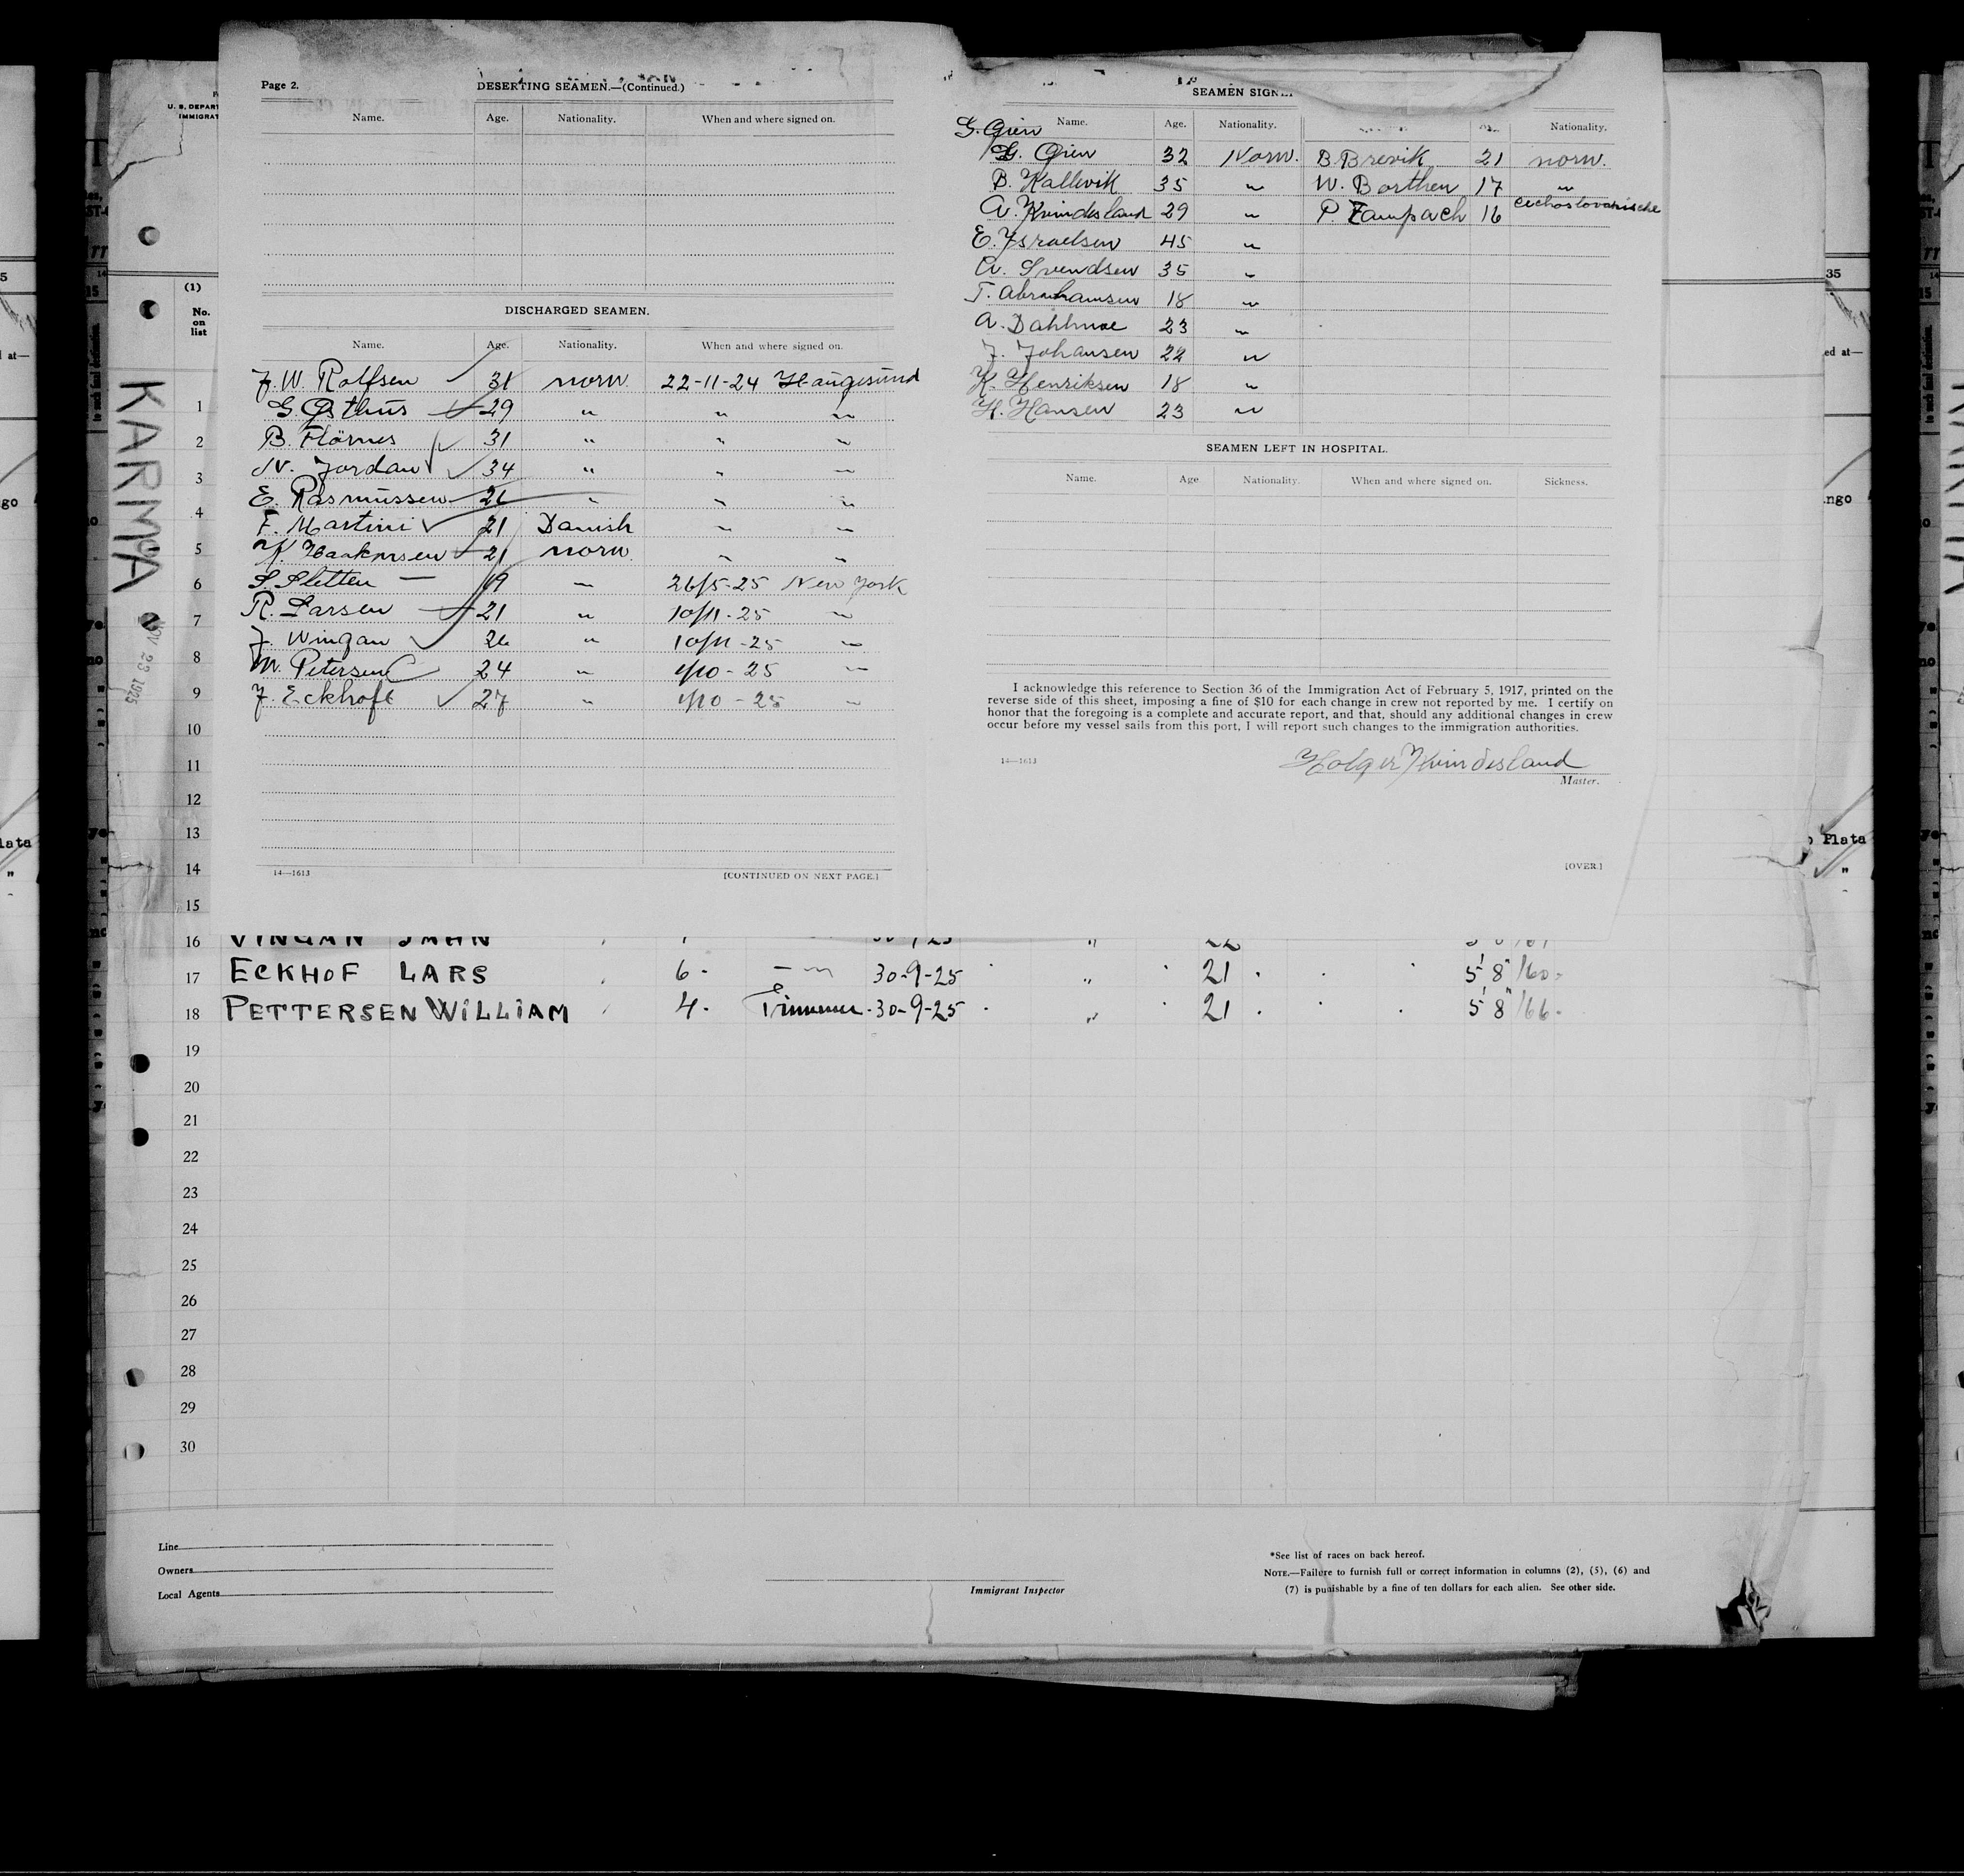 Page 2.
DESERTING SEAMEN.—(Continued.)
Name. Age. Nationality. When and where signed on.
DISCHARGED SEAMEN.
Name. Age. Nationality. When and where signed on.
J. W. Rolfsen 31 norw. 22-11-24 Haugesund
G. Østhus 29 " " "
B. Flörnes 31 " " "
N. Jordan 34 " " "
E. Rasmussen 26 " " "
F. Martini 21 Danish " "
Haakonsen 21 norw. " "
S. Sletten 19 " 26/5-25 New York
R. Larsen 21 " 10/11-25 "
J. Wingan 26 " 10/11-25 "
M. Petersen 24 " 1/10-25 "
J. Eckhoft 27 " 1/10-25 "
14—1613 [CONTINUED ON NEXT PAGE.]
SEAMEN SIGNE
Name. Age. Nationality. Nationality.
G. Øien
G. Øien 32 Norw. B. Brevik 21 norw.
B. Kallevik 35 " W. Borthen 17 "
A. Kvindesland 29 " P. Zampach 16 Cechoslovakische
E. Ysraelsen 45 "
A. Svendsen 35 "
T. Abrahamsen 18 "
A. Dahlmoe 23 "
J. Johansen 22 "
K. Henriksen 18 "
H. Hansen 23 "
SEAMEN LEFT IN HOSPITAL.
Name. Age. Nationality. When and where signed on. Sickness.
I acknowledge this reference to Section 36 of the Immigration Act of February 5, 1917, printed on the
reverse side of this sheet, imposing a fine of $10 for each change in crew not reported by me. I certify on
honor that the foregoing is a complete and accurate report, and that, should any additional changes in crew
occur before my vessel sails from this port, I will report such changes to the immigration authorities.
14—1613
Holger Kvindesland
Master.
[OVER.]
U. S. DEPART
IMMIGRAT
(1)
No.
on
list
KARMA
NOV 23 1925
1
2
3
4
5
6
7
8
9
10
11
12
13
14
15
16 VINGAN JAHN
17 ECKHOF LARS 6 - " 30-9-25 " 21 5' 8" 160
18 PETTERSEN WILLIAM 4 - Trimmer 30-9-25 " 21 5' 8" 166
19
20
21
22
23
24
25
26
27
28
29
30
Line
Owners
Local Agents
Immigrant Inspector
*See list of races on back hereof.
NOTE.—Failure to furnish full or correct information in columns (2), (5), (6) and
(7) is punishable by a fine of ten dollars for each alien. See other side.
35
ed at—
ngo
Plata
"